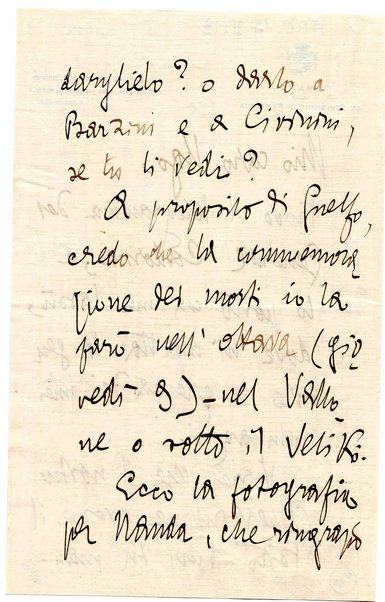 darglielo? o darlo a
Barzini e a Civinini,
se tu li vedi?
A proposito di Guelfo,
credo che la commemora
zione dei morti io la
farò nell' ottava (gio
vedì 9) - nel Vallo
ne o sotto il Veliki.
Ecco la fotografia
per Nanda, che ringrazio